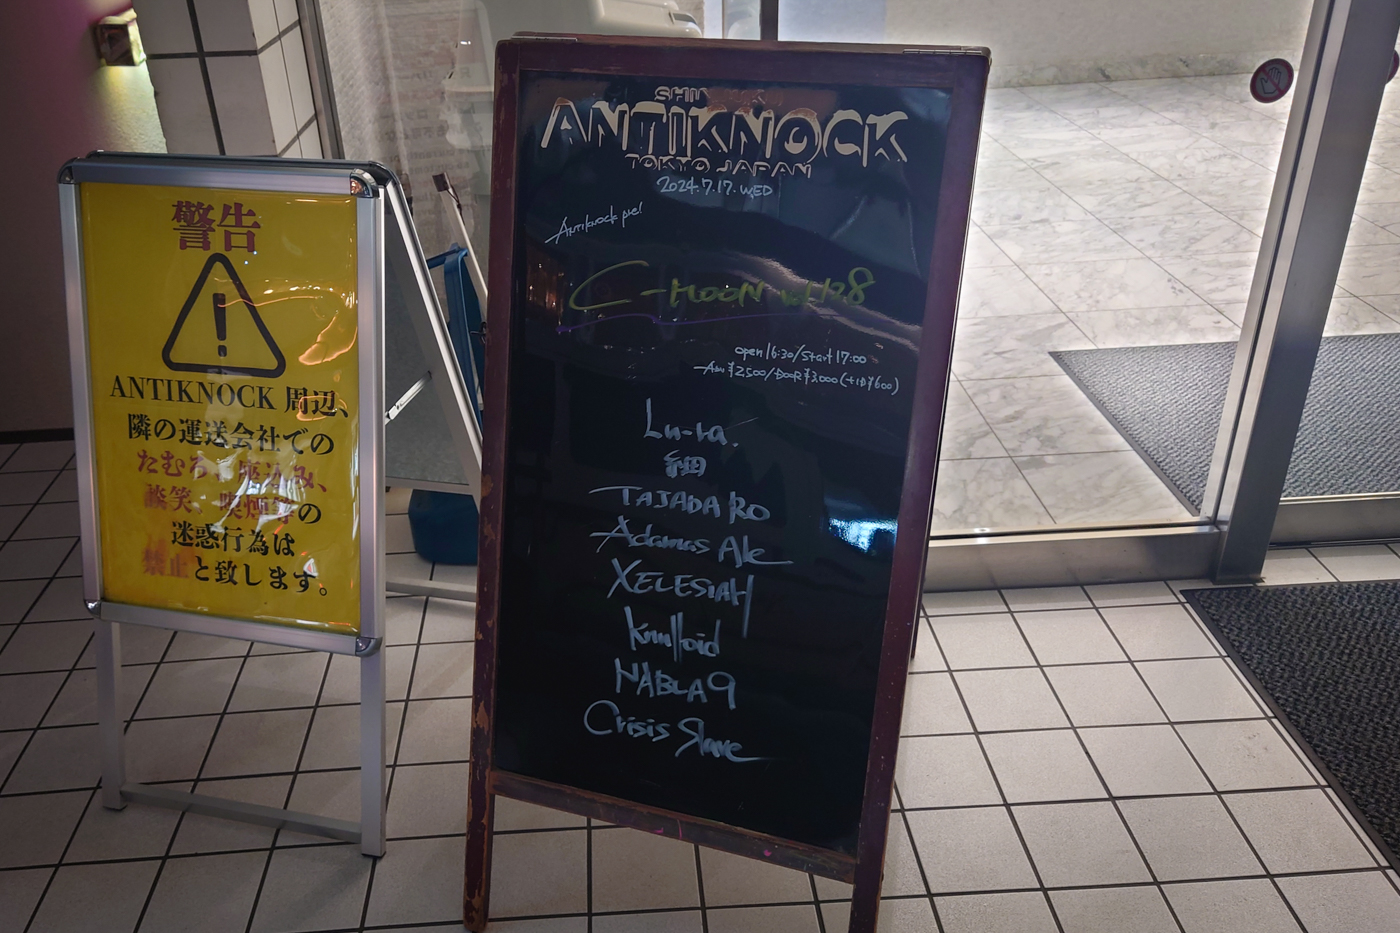 警告
ANTIKNOCK 周辺、
隣の運送会社での
たむろ、座込み、
談笑、喫煙等の
迷惑行為は
禁止と致します。
ANTIKNOCK
TOKYO JAPAN
2024.7.17.WED
Antiknock pre!
C-MOON vol.128
open 16:30/start 17:00
Adv ¥2500/DOOR ¥3,000 (+1D¥600)
Lu-ra.
TAJADA RO
Adamas Ale
XELESIAH
Knulloid
NABLA9
Crisis Slave